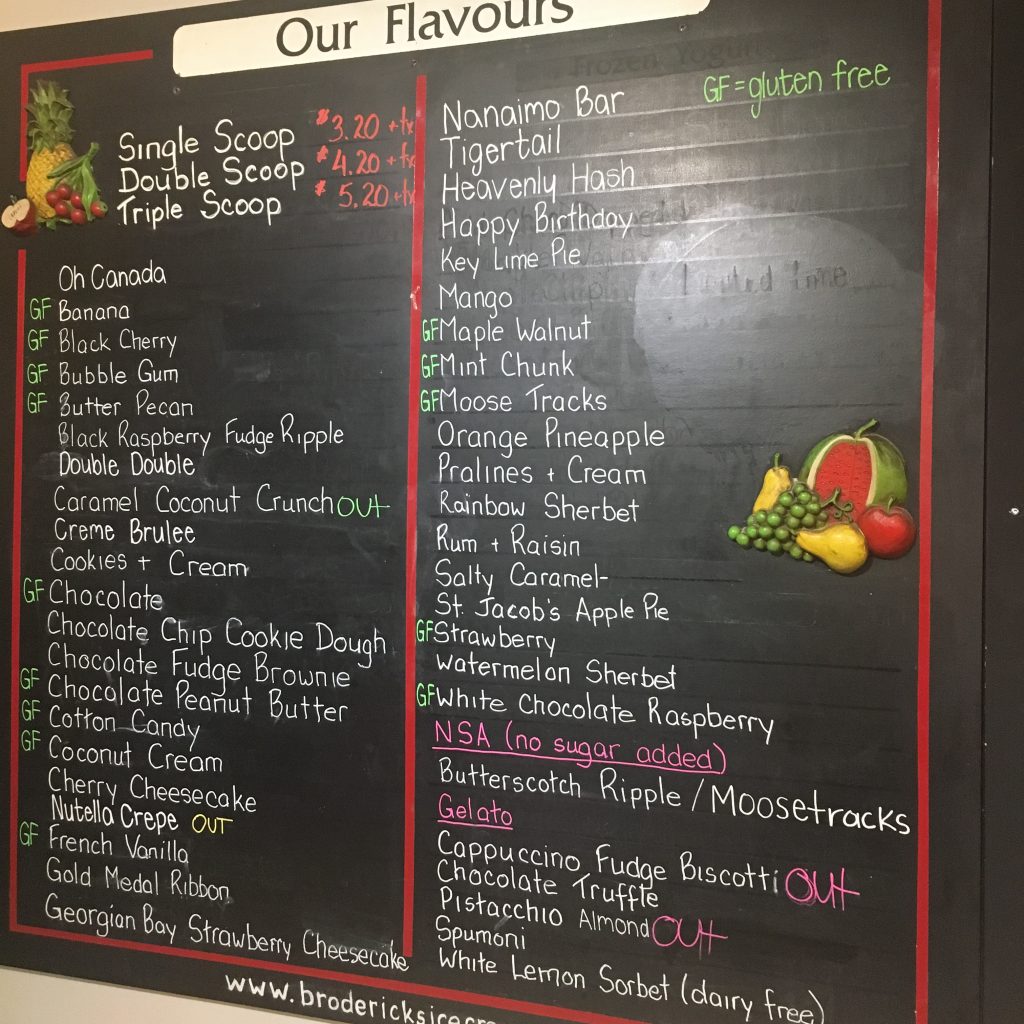 Our Flavours
Single Scoop $3.20 + tx
Double Scoop $4.20 + tx
Triple Scoop $5.20 + tx
Oh Canada
GF Banana
GF Black Cherry
GF Bubble Gum
GF Butter Pecan
Black Raspberry Fudge Ripple
Double Double
Caramel Coconut Crunch OUT
Creme Brulee
Cookies + Cream
GF Chocolate
Chocolate Chip Cookie Dough
Chocolate Fudge Brownie
GF Chocolate Peanut Butter
GF Cotton Candy
GF Coconut Cream
Cherry Cheesecake
Nutella Crepe OUT
GF French Vanilla
Gold Medal Ribbon
Georgian Bay Strawberry Cheesecake
GF = gluten free
Nanaimo Bar
Tigertail
Heavenly Hash
Happy Birthday
Key Lime Pie
Mango
GF Maple Walnut
GF Mint Chunk
GF Moose Tracks
Orange Pineapple
Pralines + Cream
Rainbow Sherbet
Rum + Raisin
Salty Caramel-
St. Jacob's Apple Pie
GF Strawberry
Watermelon Sherbet
GF White Chocolate Raspberry
NSA (no sugar added)
Butterscotch Ripple / Moosetracks
Gelato
Cappuccino Fudge Biscotti OUT
Chocolate Truffle
Pistacchio Almond OUT
Spumoni
White Lemon Sorbet (dairy free)